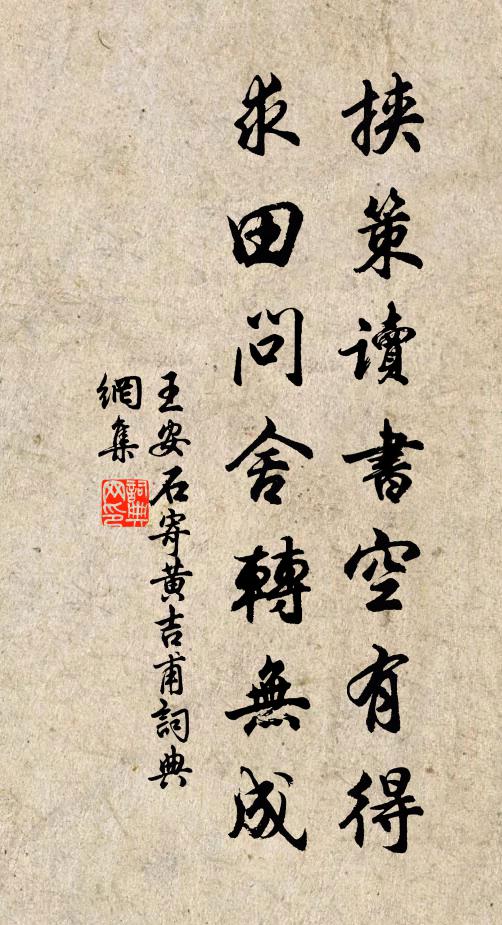 挟策讀書空有得
求田問舍轉無成
王安石寄黄吉甫詞典
網集
詞典网印